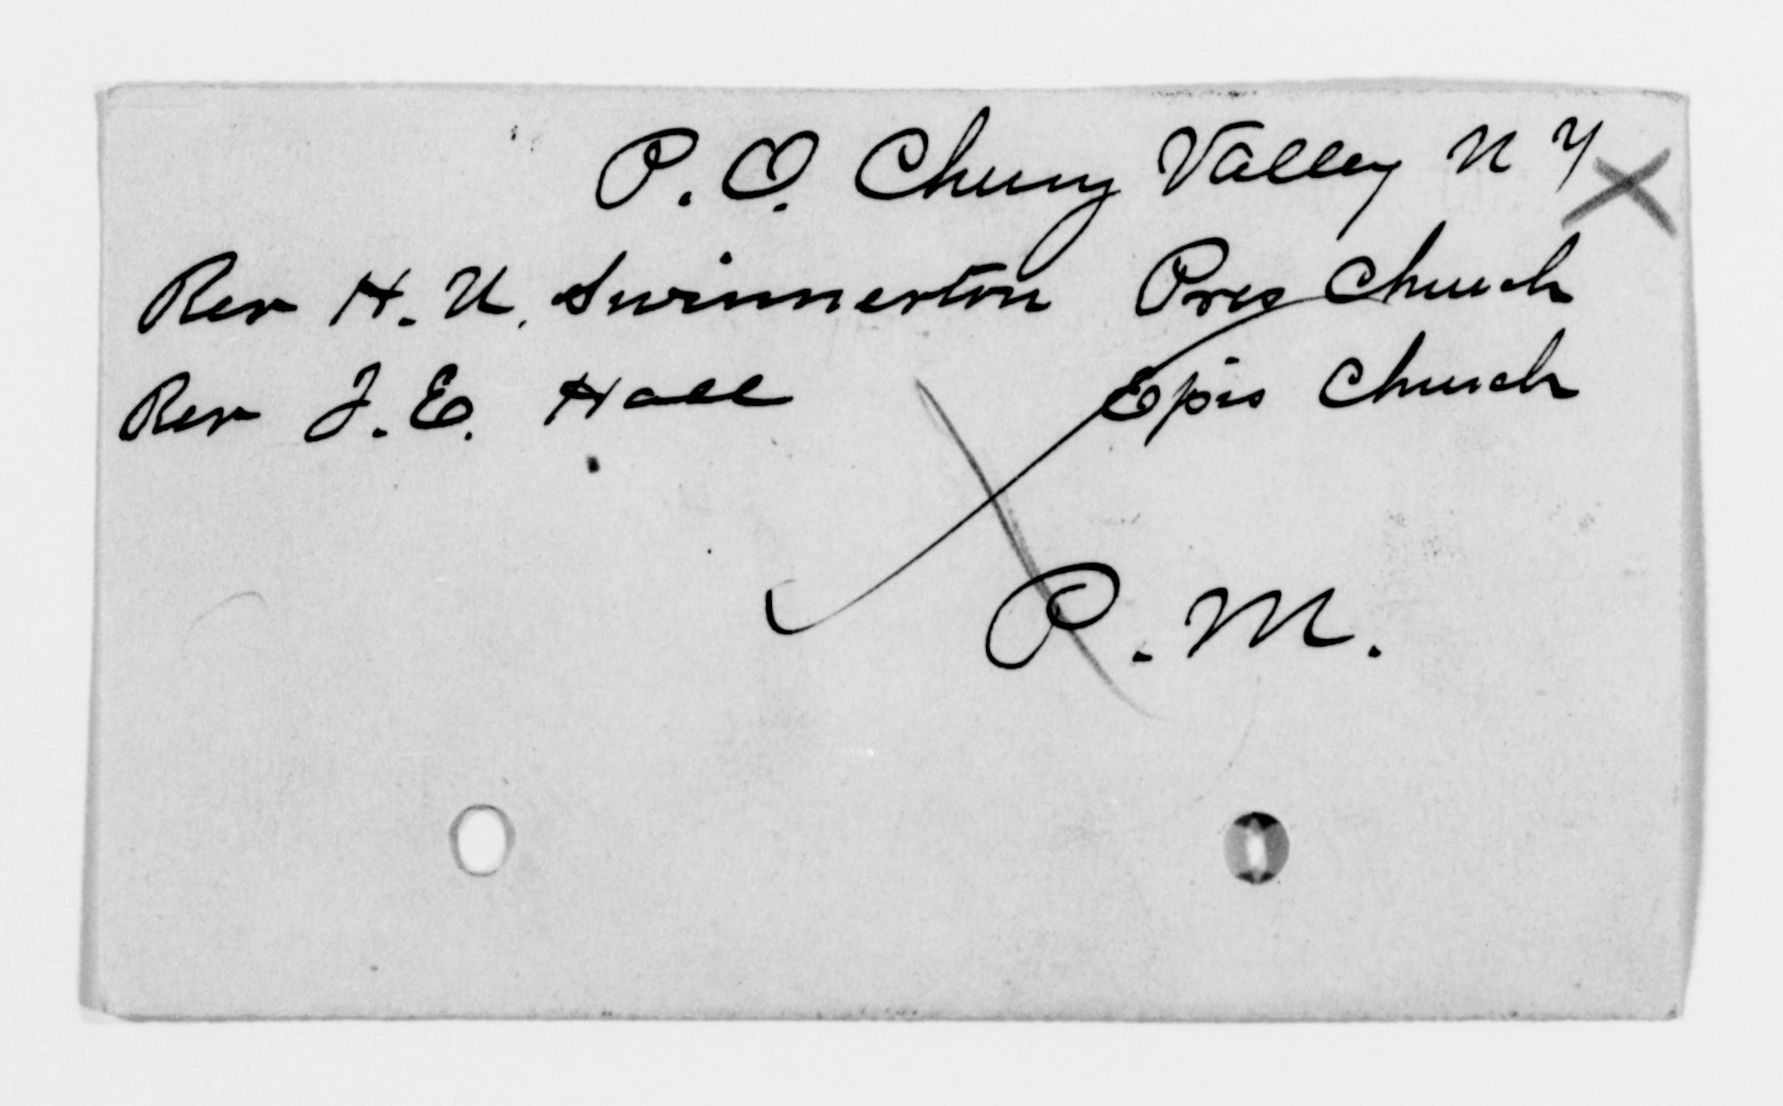 P. O. Cherry Valley N Y
Rev H. U. Swinnerton Pres Church
Rev J. E. Hall Epis Church
P. M.